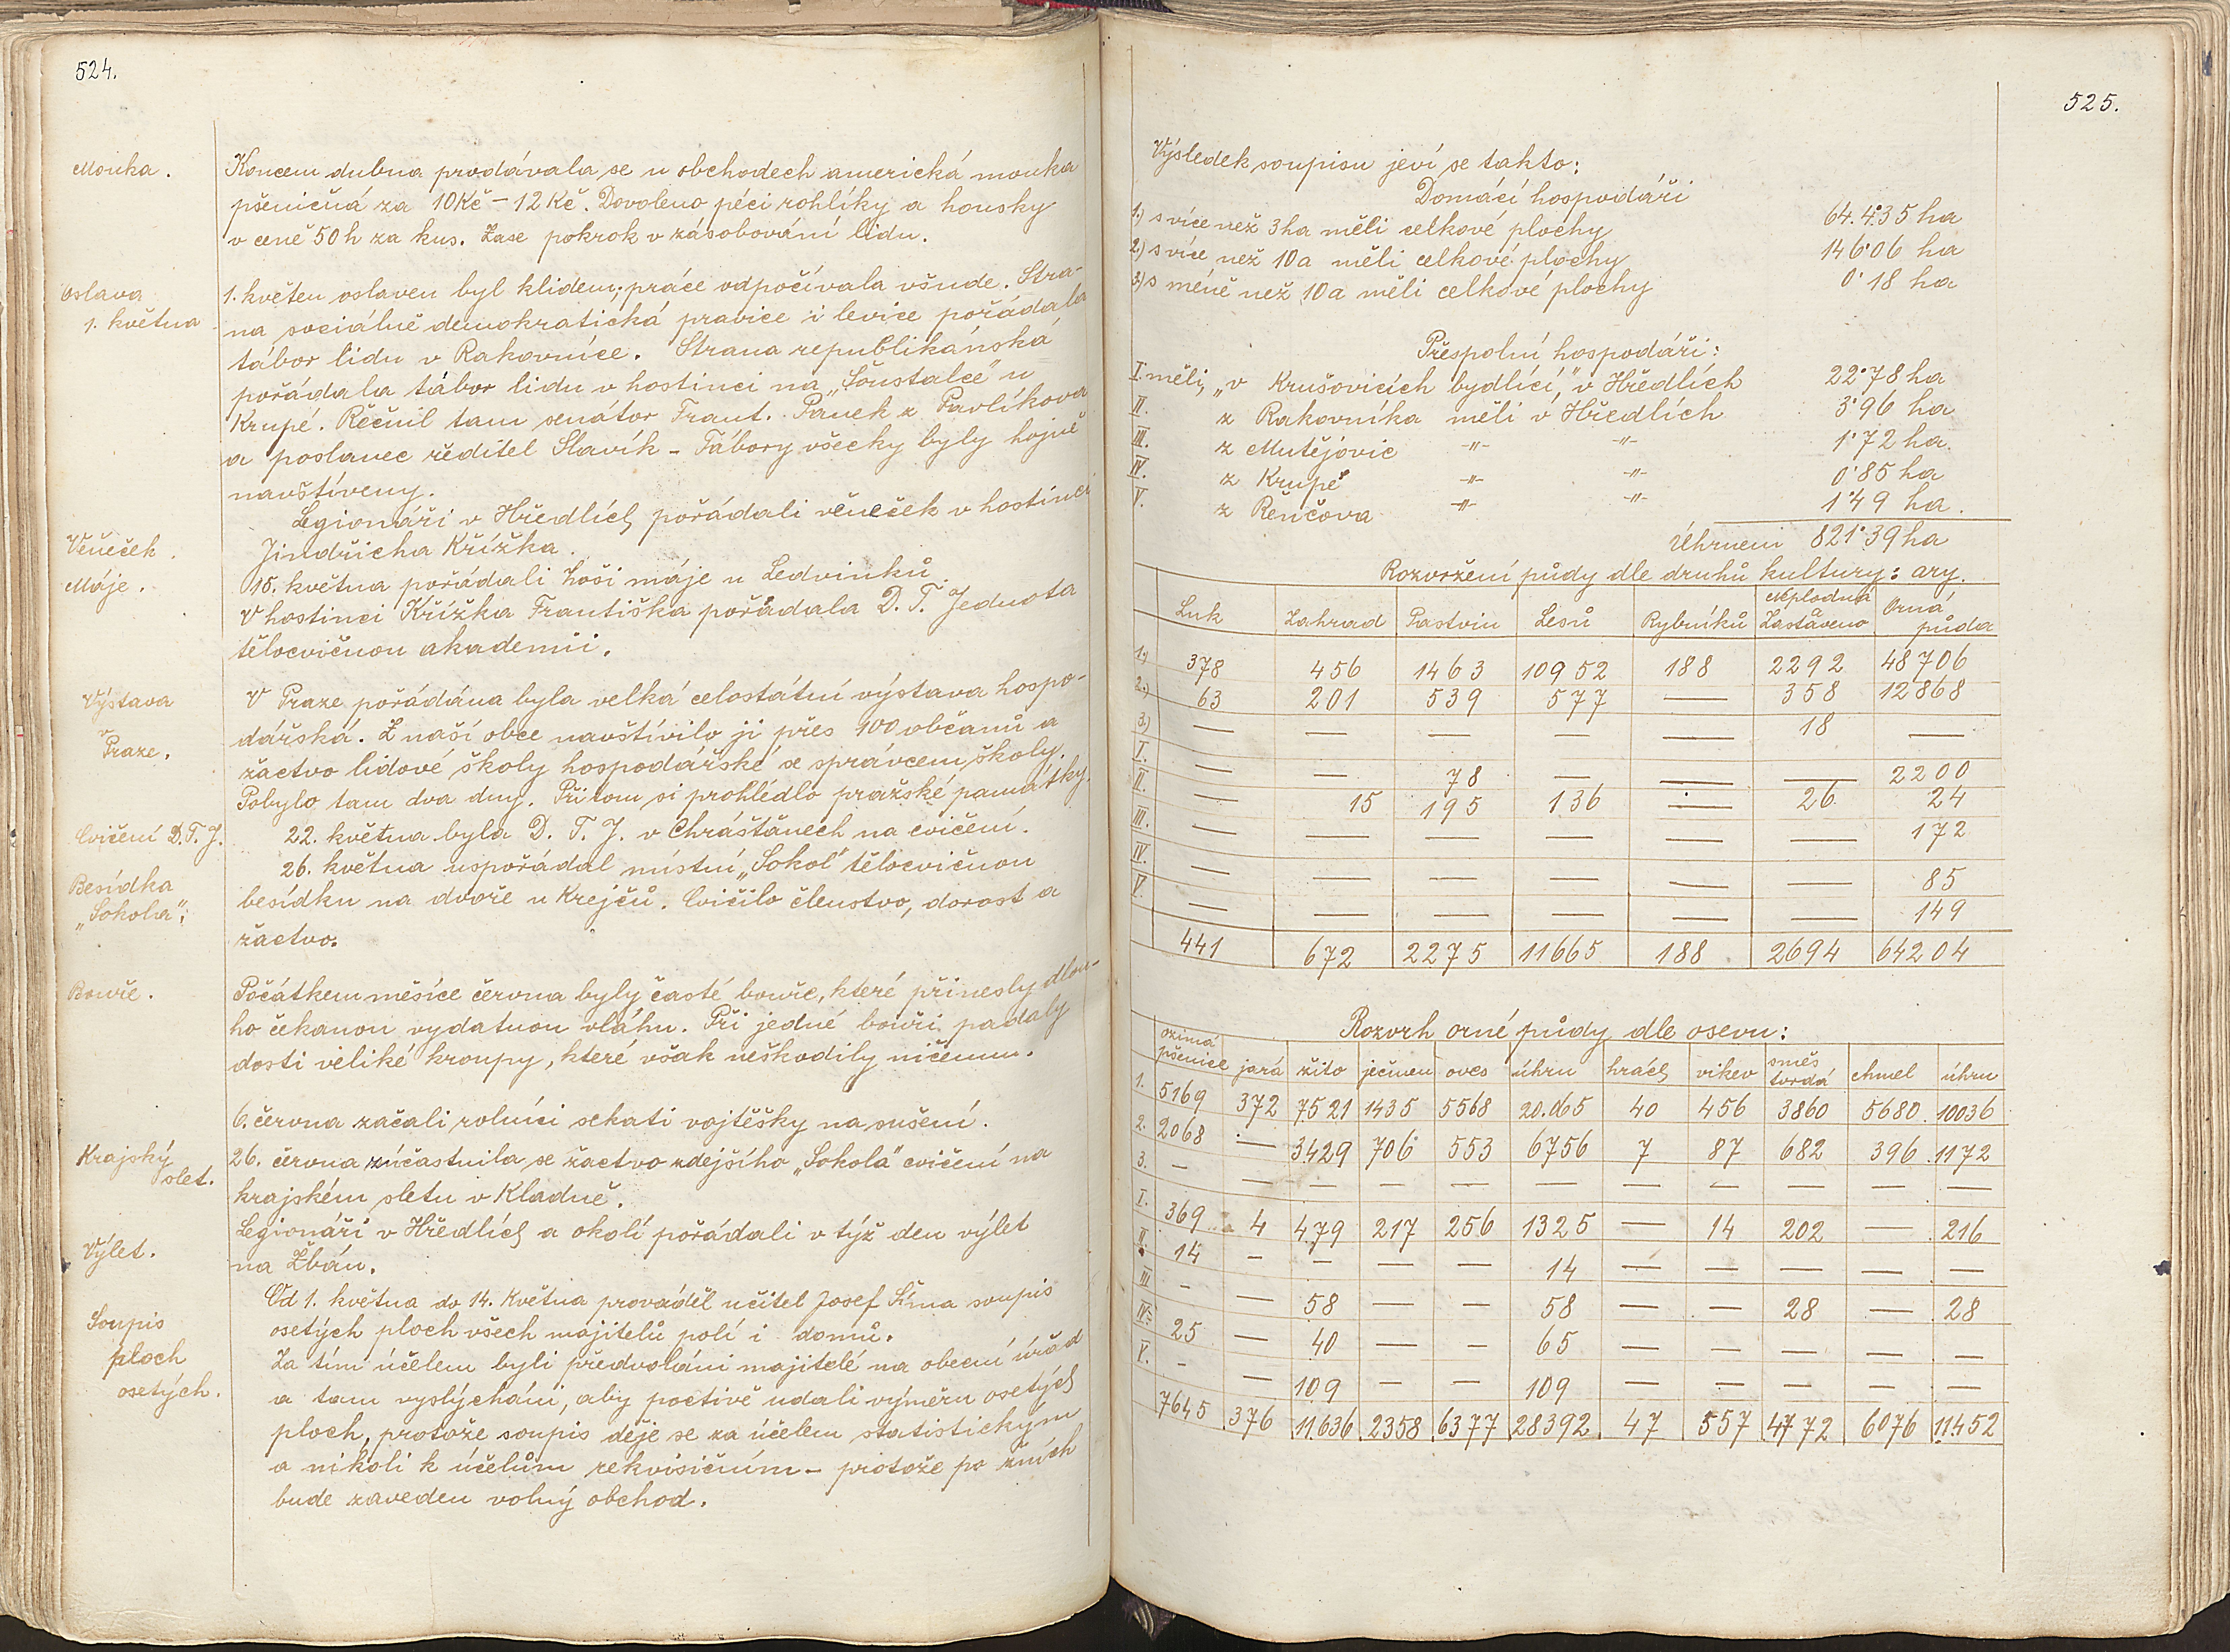 524.
Mouka.
Koncem dubna prodávala se u obchodech americká mouka
pšeničná za 10Kč – 12Kč. Dovoleno péci rohlíky a housky
v ceně 50 h za kus. Zase pokrok v zásobování lidu.
Oslava
1. května
1. květen oslaven byl klidem; práce odpočívala všude. Stra-
na sociálně demokratická pravice i levice pořádala
tábor lidu v Rakovníce. Strana republikánská
pořádala tábor lidu v hostinci na „Šoustalce" u
Krupé. Řečnil tam senátor Frant. Pánek z Pavlíkova
a poslanec ředitel Slavík – Tábory všecky byly hojně
navštíveny.
Věneček.
Legionáři v Hředlích pořádali věneček v hostinci
Jindřicha Křížka.
Máje.
15. května pořádali hoši máje u Ledvinků.
V hostinci Křížka Františka pořádala D. T. Jednota
tělocvičnou akademii.
Výstava
v
Praze.
V Praze pořádána byla velká celostátní výstava hospo-
dářská. Z naší obce navštívilo ji přes 100 občanů a
žactvo lidové školy hospodářské se správcem školy.
Pobylo tam dva dny. Přitom si prohlédlo pražské památky.
Cvičení D.T.J.
22. května byla D. T. J. v Chrášťanech na cvičení.
26. května uspořádal místní „Sokol" tělocvičnou
Besídka
„Sokola";
besídku na dvoře u Krejčů. Cvičilo členstvo, dorost a
žactvo.
Bouře.
Počátkem měsíce června byly časté bouře, které přinesly dlou-
ho čekanou vydatnou vláhu. Při jedné bouři padaly
dosti veliké kroupy, které však neškodily ničemu.
6. června začali rolníci sekati vojtěšky na sušení.
Krajský
slet.
26. června zúčastnila se žactvo zdejšího „Sokola" cvičení na
krajském sletu v Kladně.
Výlet.
Legionáři v Hředlích a okolí pořádali v týž den výlet
na Žbán.
Soupis
ploch
osetých.
Od 1. května do 14. května prováděl učitel Josef Šíma soupis
osetých ploch všech majitelů polí i domů.
Za tím účelem byli předvoláni majitelé na obecní úřad
a tam vyslýcháni, aby poctivě udali výměru osetých
ploch, protože soupis děje se za účelem statistickým
a nikoli k účelům rekvisičním – protože po žních
bude zaveden volný obchod.
525.
Výsledek soupisu jeví se takto:
Domácí hospodáři
1.) s více než 3ha měli celkové plochy 64.4.35 ha
2.) s více než 10a měli celkové plochy 146·06 ha
3.) s méně než 10a měli celkové plochy 0·18 ha
Přespolní hospodáři:
I. měli, „v Krušovicích bydlící," v Hředlích 22·78 ha
II. z Rakovníka měli v Hředlích 3·96 ha
III. z Mutějovic –"– –"– 1·72 ha.
IV. z Krupé –"– –"– 0·85 ha
V. z Řenčova –"– –"– 1·49 ha.
Úhrnem 821·39 ha
Rozvržení půdy dle druhů kultury: ary.
Luk Zahrad Pastvin Lesů Rybníků Neplodná Zastaveno Orná půda
1.) 378 456 1463 10952 188 2292 48706
2.) 63 201 539 577 — 358 12868
3.) — — — — — 18 —
I. — — 78 — — — 2200
II. — 15 195 136 — 26 24
III. — — — — — — 172
IV. — — — — — — 85
V. — — — — — — 149
441 672 2275 11665 188 2694 64204
Rozvrh orné půdy dle osevu:
ozimá pšenice jará žito ječmen oves úhrn hrách vikev směs tvrdá chmel úhrn
1. 5169 372 7521 1435 5568 20.065 40 456 3860 5680 10036
2. 2068 — 3429 706 553 6756 7 87 682 396 1172
3. — — — — — — — — — — —
I. 369 4 479 217 256 1325 — 14 202 — 216
II. 14 — — — — 14 — — — — —
III. — — 58 — — 58 — — 28 — 28
IV. 25 — 40 — — 65 — — — — —
V. — — 109 — — 109 — — — — —
7645 376 11636 2358 6377 28392 47 557 4772 6076 11452